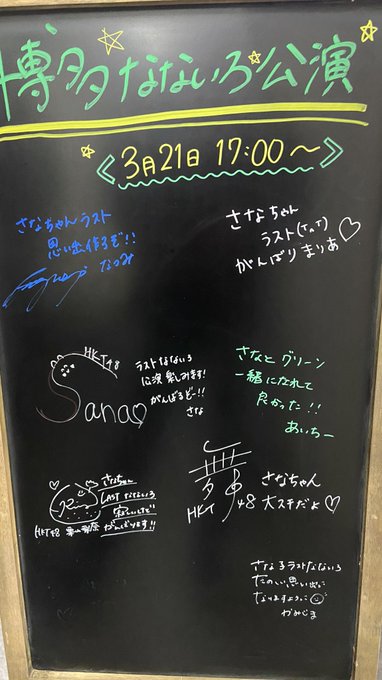 博多なないろ公演
3月21日 17:00～
さなちゃんラスト
思い出作るぞ!!
なつみ
さなちゃん
ラスト(T^T)
がんばりまりあ♡
HKT48
Sana
ラストなないろ
公演楽しみます!
がんばるぞー!!
さな
さなとグリーン
一緒になれて
良かった!!
あいちー
さなちゃん
LASTなないろ
寂しいけど
がんばります!!
HKT48
さなちゃん
大ステだよ♡
HKT
48
さな子ラストなないろ
たのしい思い出に
なりますように